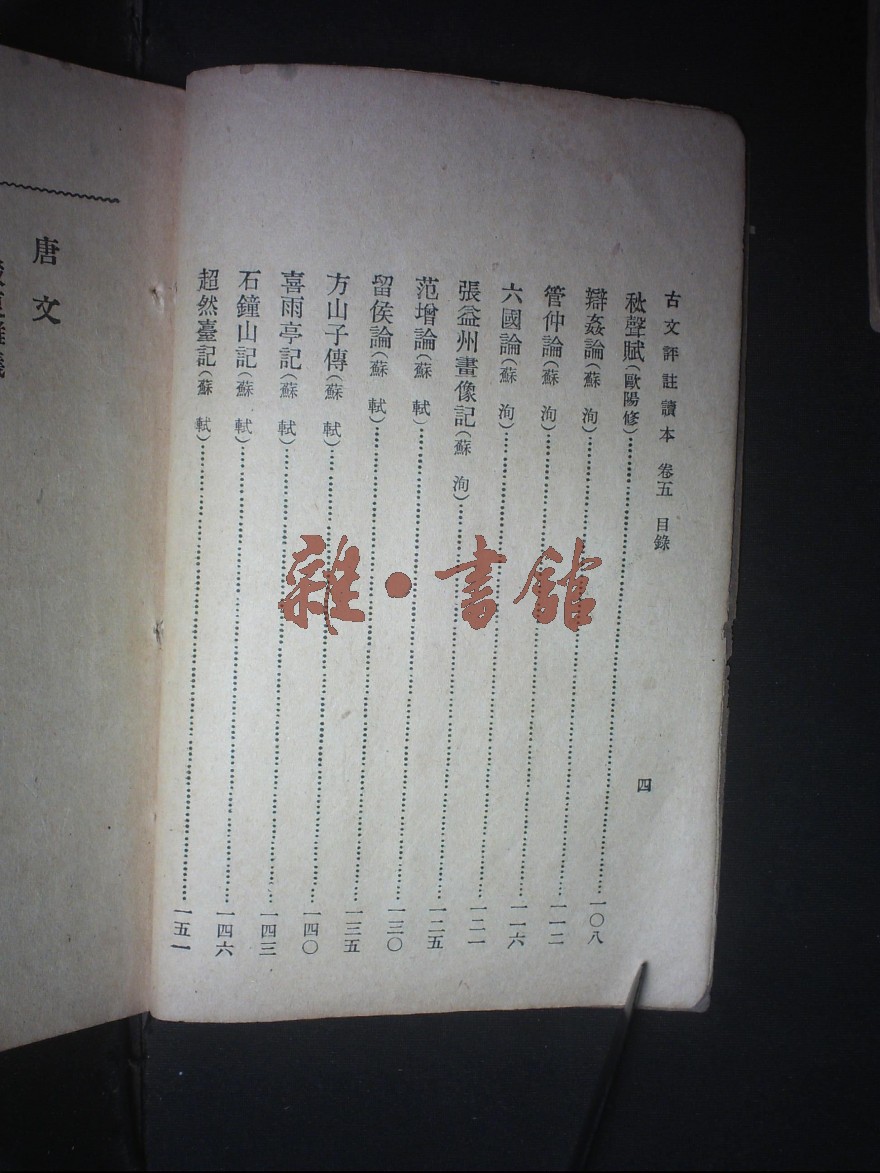 古文評註讀本　卷五　目錄
四
秋聲賦（歐陽修）……一〇八
辯姦論（蘇　洵）……一一二
管仲論（蘇　洵）……一一六
六國論（蘇　洵）……一二一
張益州畫像記（蘇　洵）……一二五
范增論（蘇　軾）……一三〇
留侯論（蘇　軾）……一三五
方山子傳（蘇　軾）……一四〇
喜雨亭記（蘇　軾）……一四三
石鐘山記（蘇　軾）……一四六
超然臺記（蘇　軾）……一五一
唐文
雜·書館